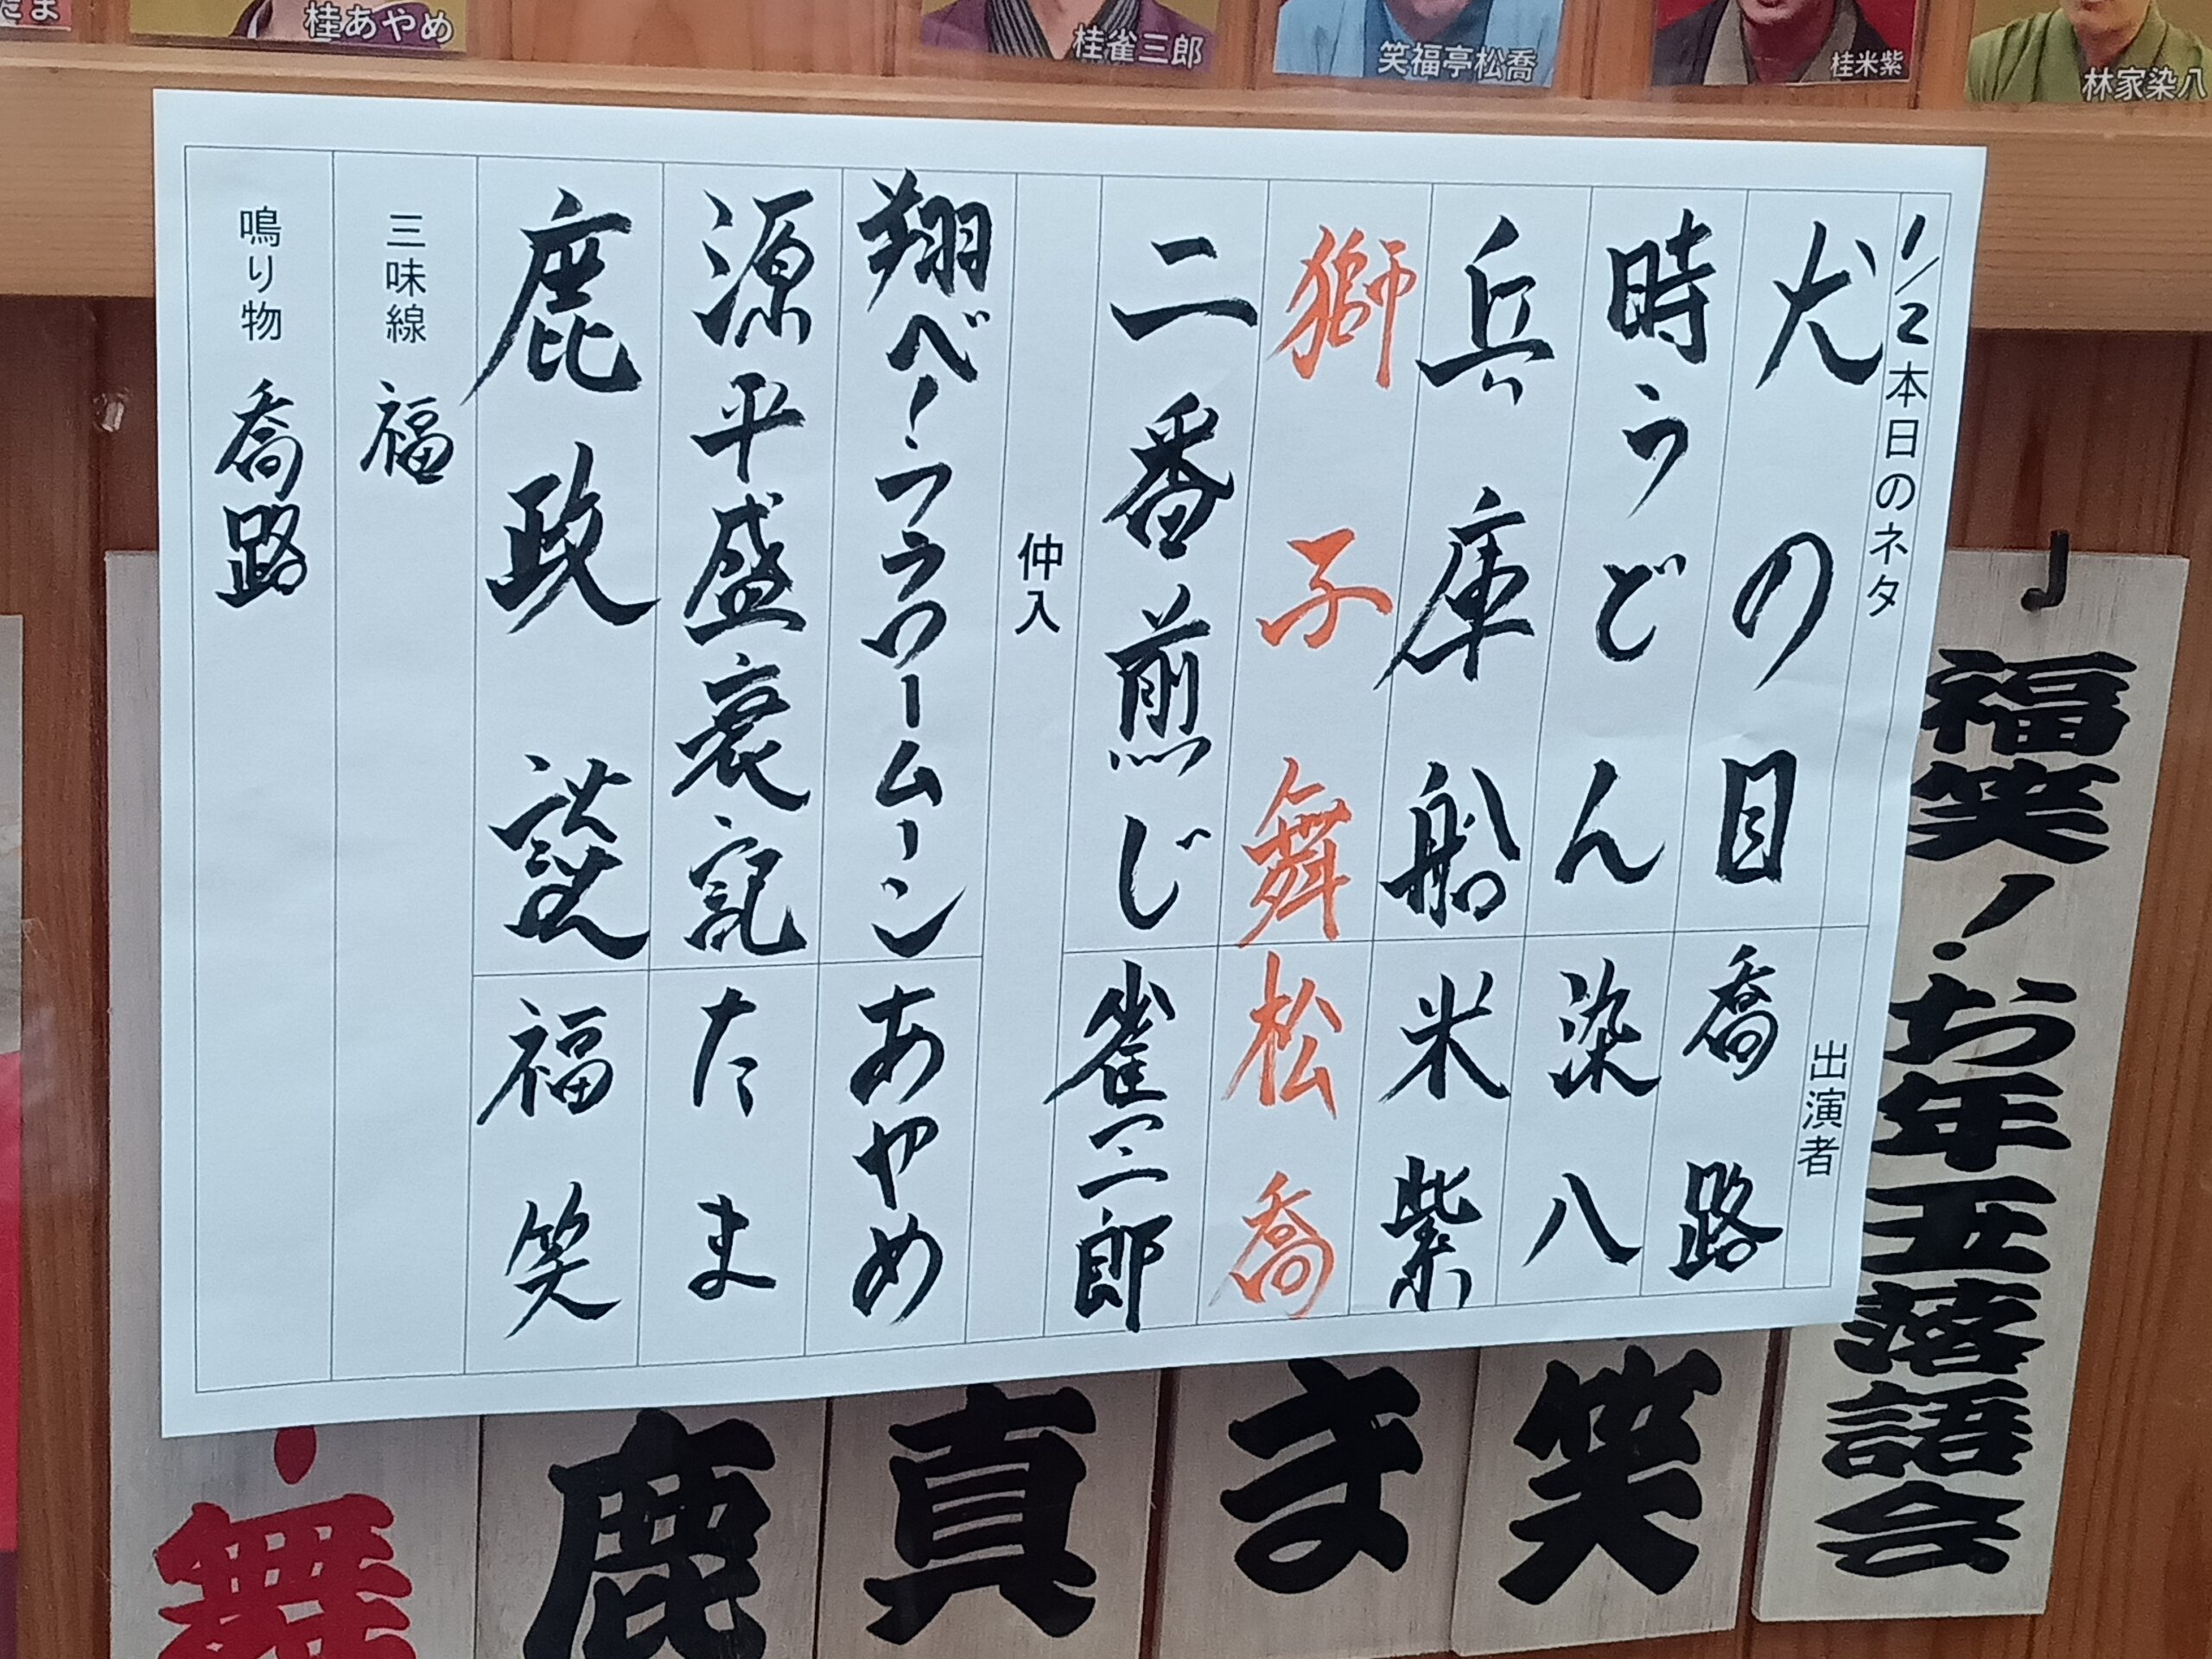 桂あやめ
桂雀三郎
笑福亭松喬
桂米紫
林家染八
1/2 本日のネタ 出演者
犬の目 喬路
時うどん 染八
兵庫船 米紫
獅子舞 松喬
二番煎じ 雀三郎
仲入
翔べ!フラワームーン あやめ
源平盛衰記 たま
鹿政談 福笑
三味線 福
鳴り物 喬路
福笑!お年玉落語会
笑
ま
真
鹿
舞